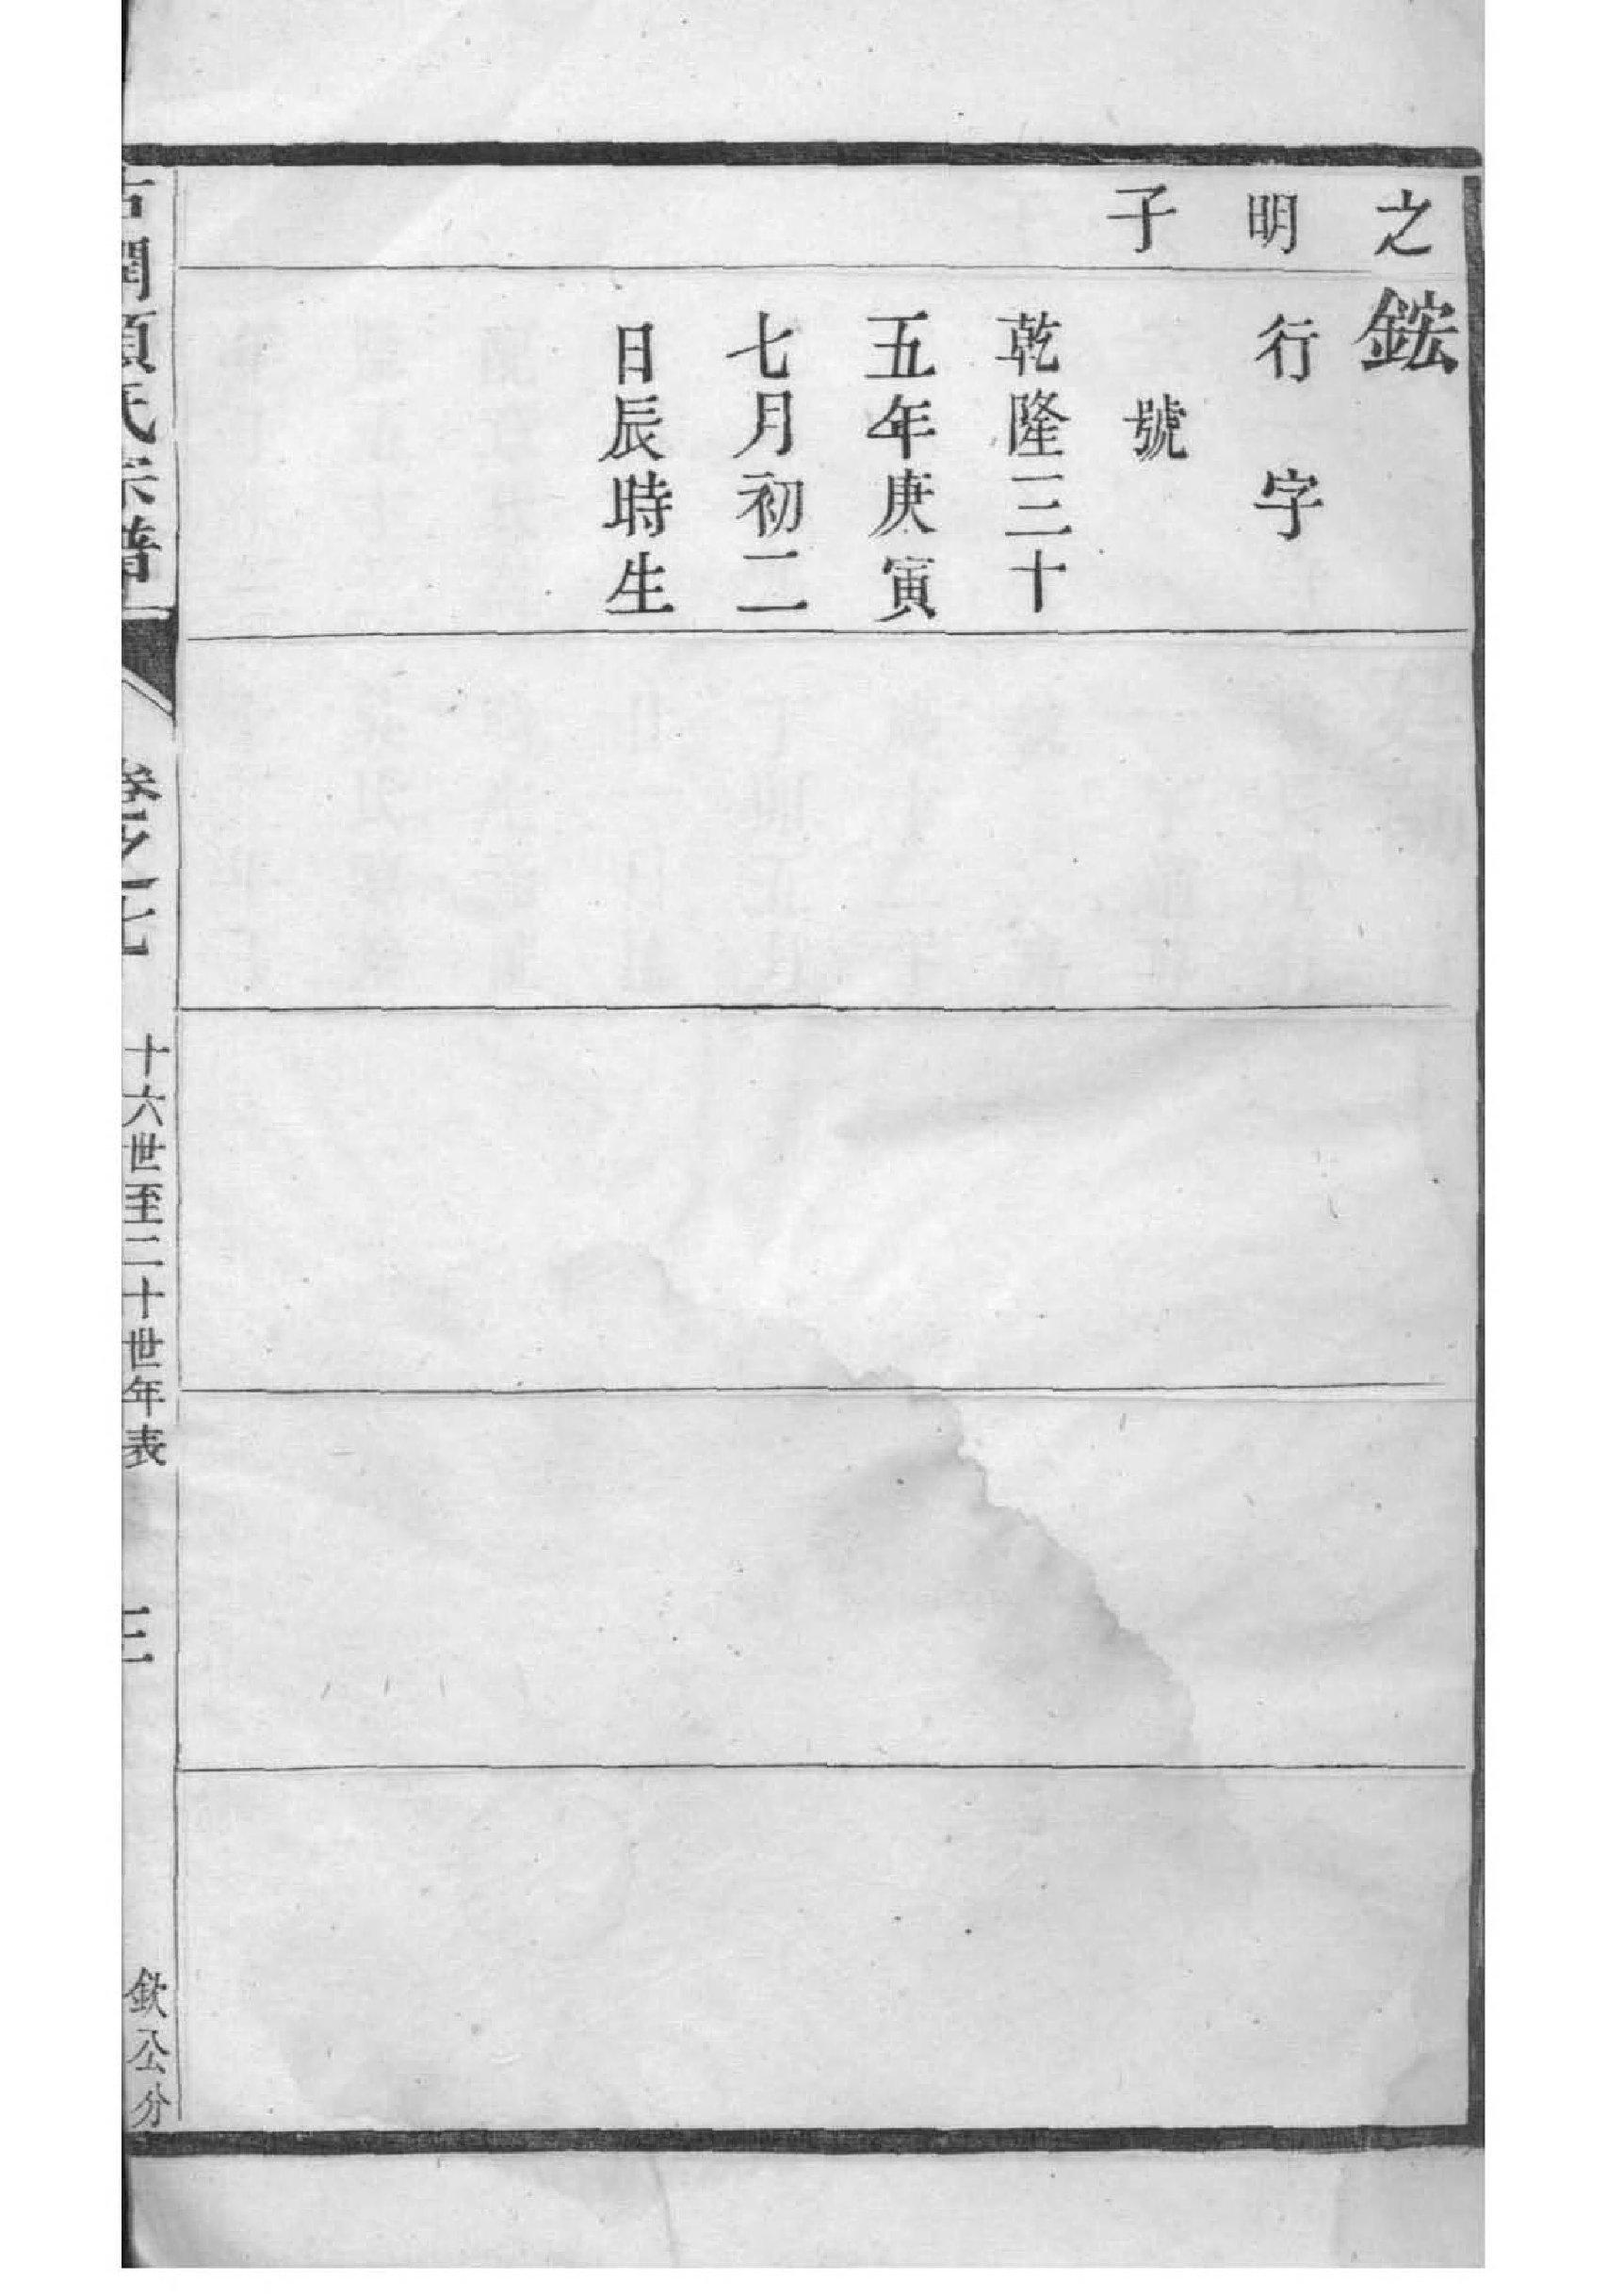 之
明
子
鋐
行　字
號
乾隆三十
五年庚寅
七月初二
日辰時生
氏宗譜
卷之十七
十六世至二十世年表
三
欽公分